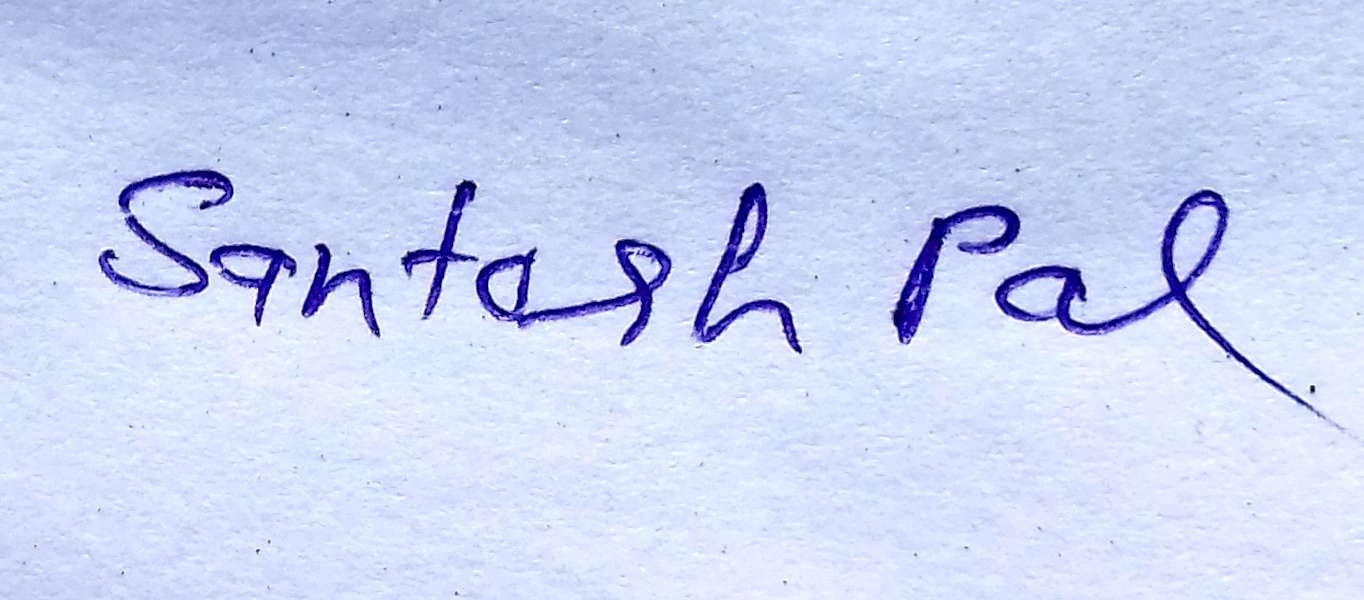 Santosh Pal